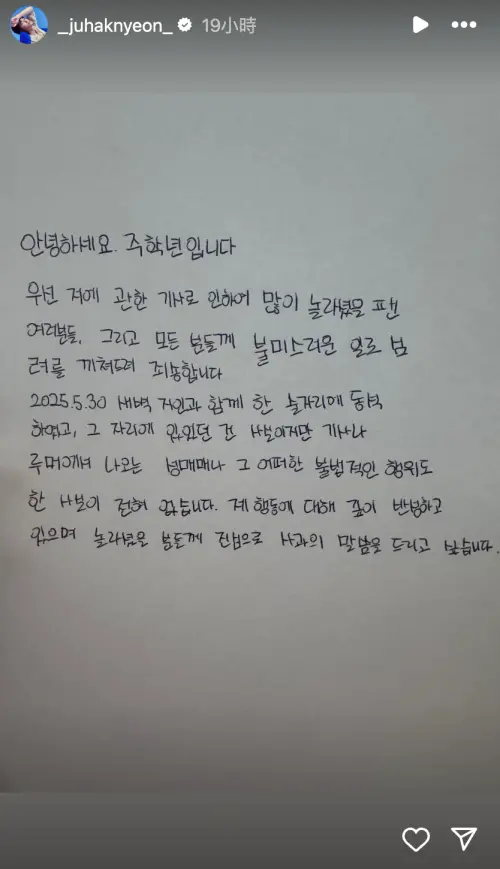 _juhaknyeon_ 19小時
안녕하세요. 주학년입니다
우선 저에 관한 기사로 인하여 많이 놀라셨을 팬
여러분들, 그리고 모든 분들께 불미스러운 일로 심
려를 끼쳐드려 죄송합니다
2025.5.30 새벽 지인과 함께 한 술자리에 동석
하였고, 그 자리에 있었던 건 사실이지만 기사나
루머에서 나오는 성매매나 그 어떠한 불법적인 행위도
한 사실이 전혀 없습니다. 제 행동에 대해 깊이 반성하고
있으며 놀라셨을 분들께 진심으로 사과의 말씀을 드리고 싶습니다.